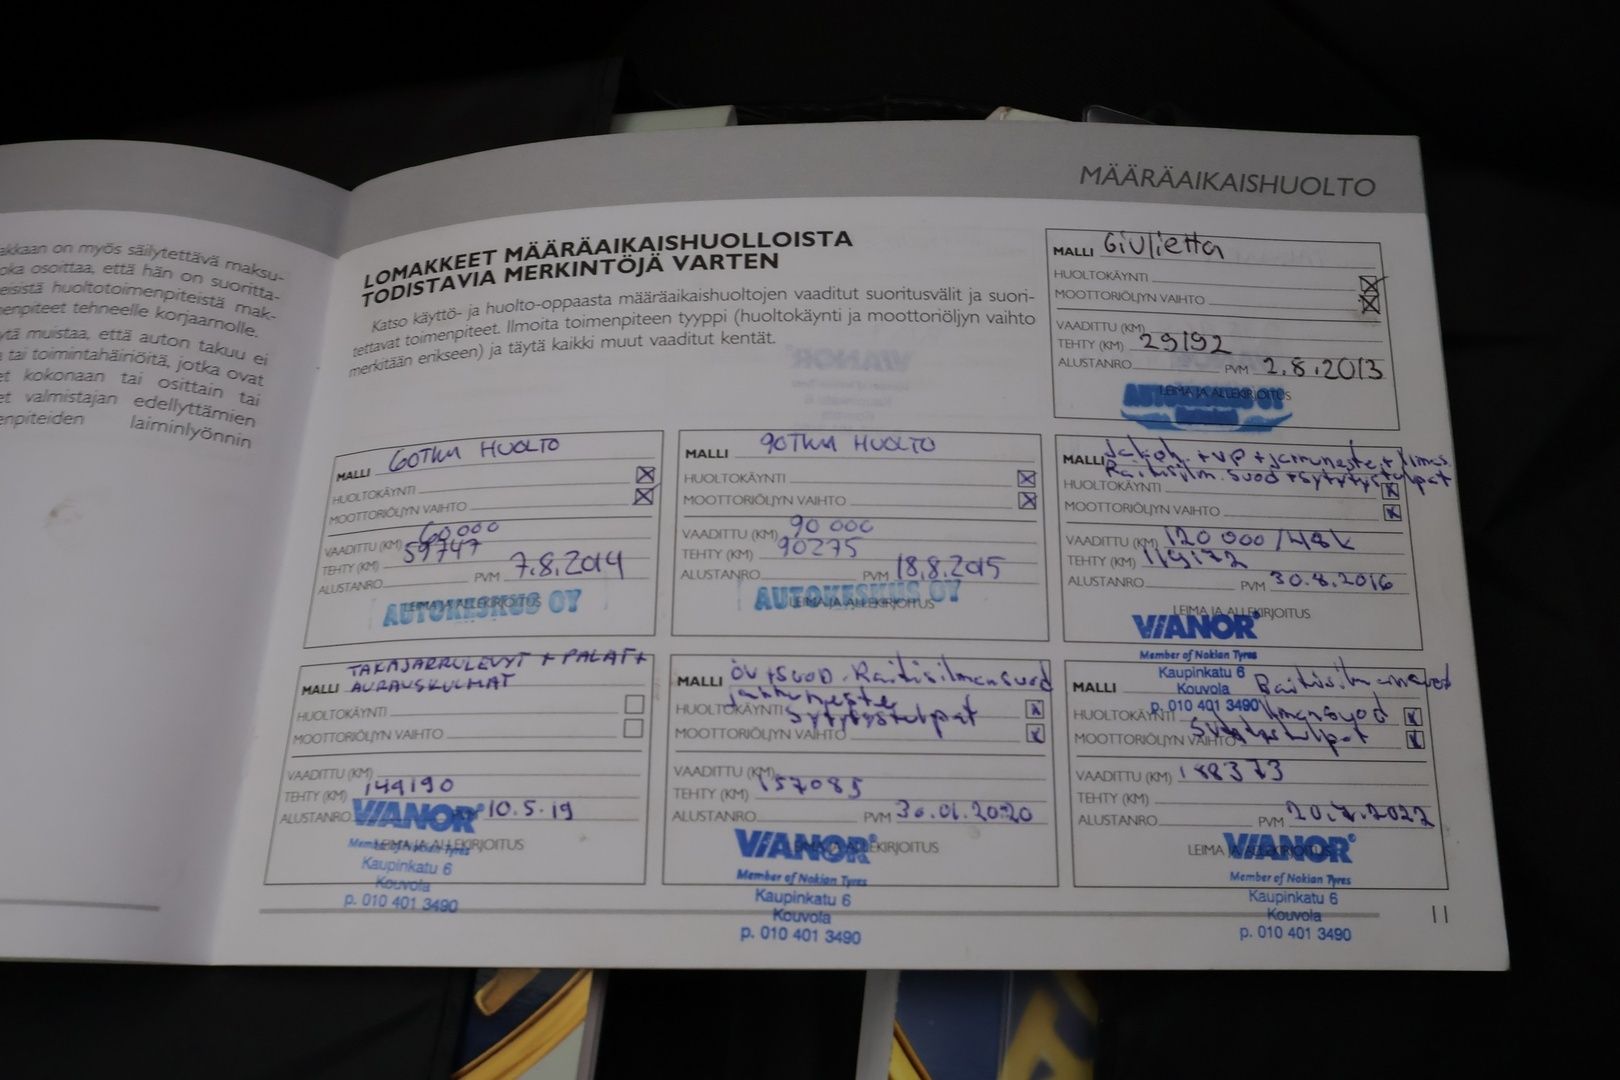 akkaan on myös säilytettävä maksu-
oka osoittaa, että hän on suoritta-
eisistä huoltotoimenpiteistä mak-
enpiteet tehneelle korjaamolle.
ytä muistaa, että auton takuu ei
tai toimintahäiriöitä, jotka ovat
et kokonaan tai osittain tai
et valmistajan edellyttämien
enpiteiden laiminlyönnin
MÄÄRÄAIKAISHUOLTO
LOMAKKEET MÄÄRÄAIKAISHUOLLOISTA
TODISTAVIA MERKINTÖJÄ VARTEN
Katso käyttö- ja huolto-oppaasta määräaikaishuoltojen vaaditut suoritusvälit ja suori-
tettavat toimenpiteet. Ilmoita toimenpiteen tyyppi (huoltokäynti ja moottoriöljyn vaihto
merkitään erikseen) ja täytä kaikki muut vaaditut kentät.
MALLI Giulietta
HUOLTOKÄYNTI
MOOTTORIÖLJYN VAIHTO
VAADITTU (KM)
TEHTY (KM) 29192
ALUSTANRO PVM 2.8.2013
LEIMA JA ALLEKIRJOITUS
AUTOKESKUS OY
MALLI 60TKM HUOLTO
HUOLTOKÄYNTI
MOOTTORIÖLJYN VAIHTO
VAADITTU (KM) 60000
TEHTY (KM) 59747
ALUSTANRO PVM 7.8.2014
LEIMA JA ALLEKIRJOITUS
AUTOKESKUS OY
MALLI 90TKM HUOLTO
HUOLTOKÄYNTI
MOOTTORIÖLJYN VAIHTO
VAADITTU (KM) 90 000
TEHTY (KM) 90275
ALUSTANRO PVM 18.8.2015
LEIMA JA ALLEKIRJOITUS
AUTOKESKUS OY
MALLI Jakoh. + VP + jarruneste + ilmas.
Raitisilm. suod + sytytystulpat
HUOLTOKÄYNTI
MOOTTORIÖLJYN VAIHTO
VAADITTU (KM) 120 000 / 48k
TEHTY (KM) 119172
ALUSTANRO PVM 30.8.2016
LEIMA JA ALLEKIRJOITUS
VIANOR
Member of Nokian Tyres
Kaupinkatu 6
Kouvola
p. 010 401 3490
TAKAJARRULEVYT + PALAT +
MALLI AURAUSKULMAT
HUOLTOKÄYNTI
MOOTTORIÖLJYN VAIHTO
VAADITTU (KM)
TEHTY (KM) 144190
ALUSTANRO PVM 10.5.19
LEIMA JA ALLEKIRJOITUS
VIANOR
Member of Nokian Tyres
Kaupinkatu 6
Kouvola
p. 010 401 3490
MALLI ÖV + SUOD. Raitisilmansuod
jarruneste
HUOLTOKÄYNTI sytytystulpat
MOOTTORIÖLJYN VAIHTO
VAADITTU (KM)
TEHTY (KM) 157085
ALUSTANRO PVM 30.01.2020
LEIMA JA ALLEKIRJOITUS
VIANOR
Member of Nokian Tyres
Kaupinkatu 6
Kouvola
p. 010 401 3490
MALLI
HUOLTOKÄYNTI ilmansuod
MOOTTORIÖLJYN VAIHTO sytytystulpat
VAADITTU (KM) 188373
TEHTY (KM)
ALUSTANRO PVM 20.7.2022
LEIMA JA ALLEKIRJOITUS
VIANOR
Member of Nokian Tyres
Kaupinkatu 6
Kouvola
p. 010 401 3490
11